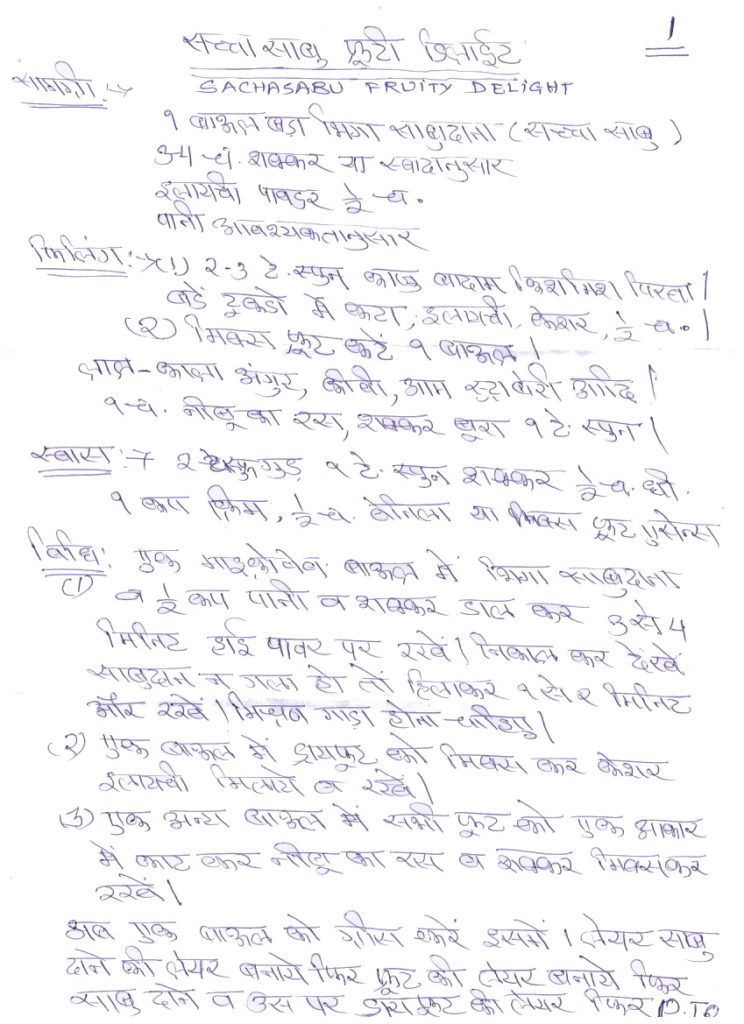 1
सच्चा साबु फ्रूटी डिलाईट
SACHASABU FRUITY DELIGHT
सामग्री :→
१ बाऊल बडा भिगा साबुदाना (सच्चा साबु)
3-4 च. शक्कर या स्वादानुसार
इलायची पावडर ½ च.
पानी आवश्यकतानुसार
फिलिंग :→ (1) २-3 टे. स्पुन काजु बादाम किशमिश पिस्ता।
बडे टूकडो में कटा, इलायची, केशर, ½ च.।
(२) मिक्स फ्रूट कटे १ बाऊल।
लाल-काला अंगुर, कीवी, आम स्ट्राबेरी आदि।
१ च. नीबू का रस, शक्कर बूरा १ टे. स्पुन।
स्वास :→ २ टे स्पुन गुड़ १ टे. स्पुन शक्कर ½ च. घी.
१ कप क्रिम, ½ च. वेनिला या मिक्स फ्रूट एसेन्स
विधि: एक माइक्रोवेव बाऊल में भिगा साबुदाना
(1) व ½ कप पानी व शक्कर डाल कर 3 से 4
मिनिट हाई पावर पर रखें। निकाल कर देखें
साबुदाना न गला हो तो हिलाकर १ से २ मिनिट
और रखें। मिश्रण गाडा होना चाहिए।
(२) एक बाऊल में ड्रायफ्रूट को मिक्स कर केशर
इलायची मिलाये व रखें।
(3) एक अन्य बाऊल में सभी फ्रूट को एक आकार
में काट कर नीबू का रस व शक्कर मिक्स कर
रखें।
अब एक बाऊल को ग्रीस करें इसमें 1 लेयर साबु
दाने की लेयर बनाये फिर फ्रूट की लेयर बनाये फिर
साबु दाने व उस पर ड्राय फ्रूट की लेयर फिर P.TO